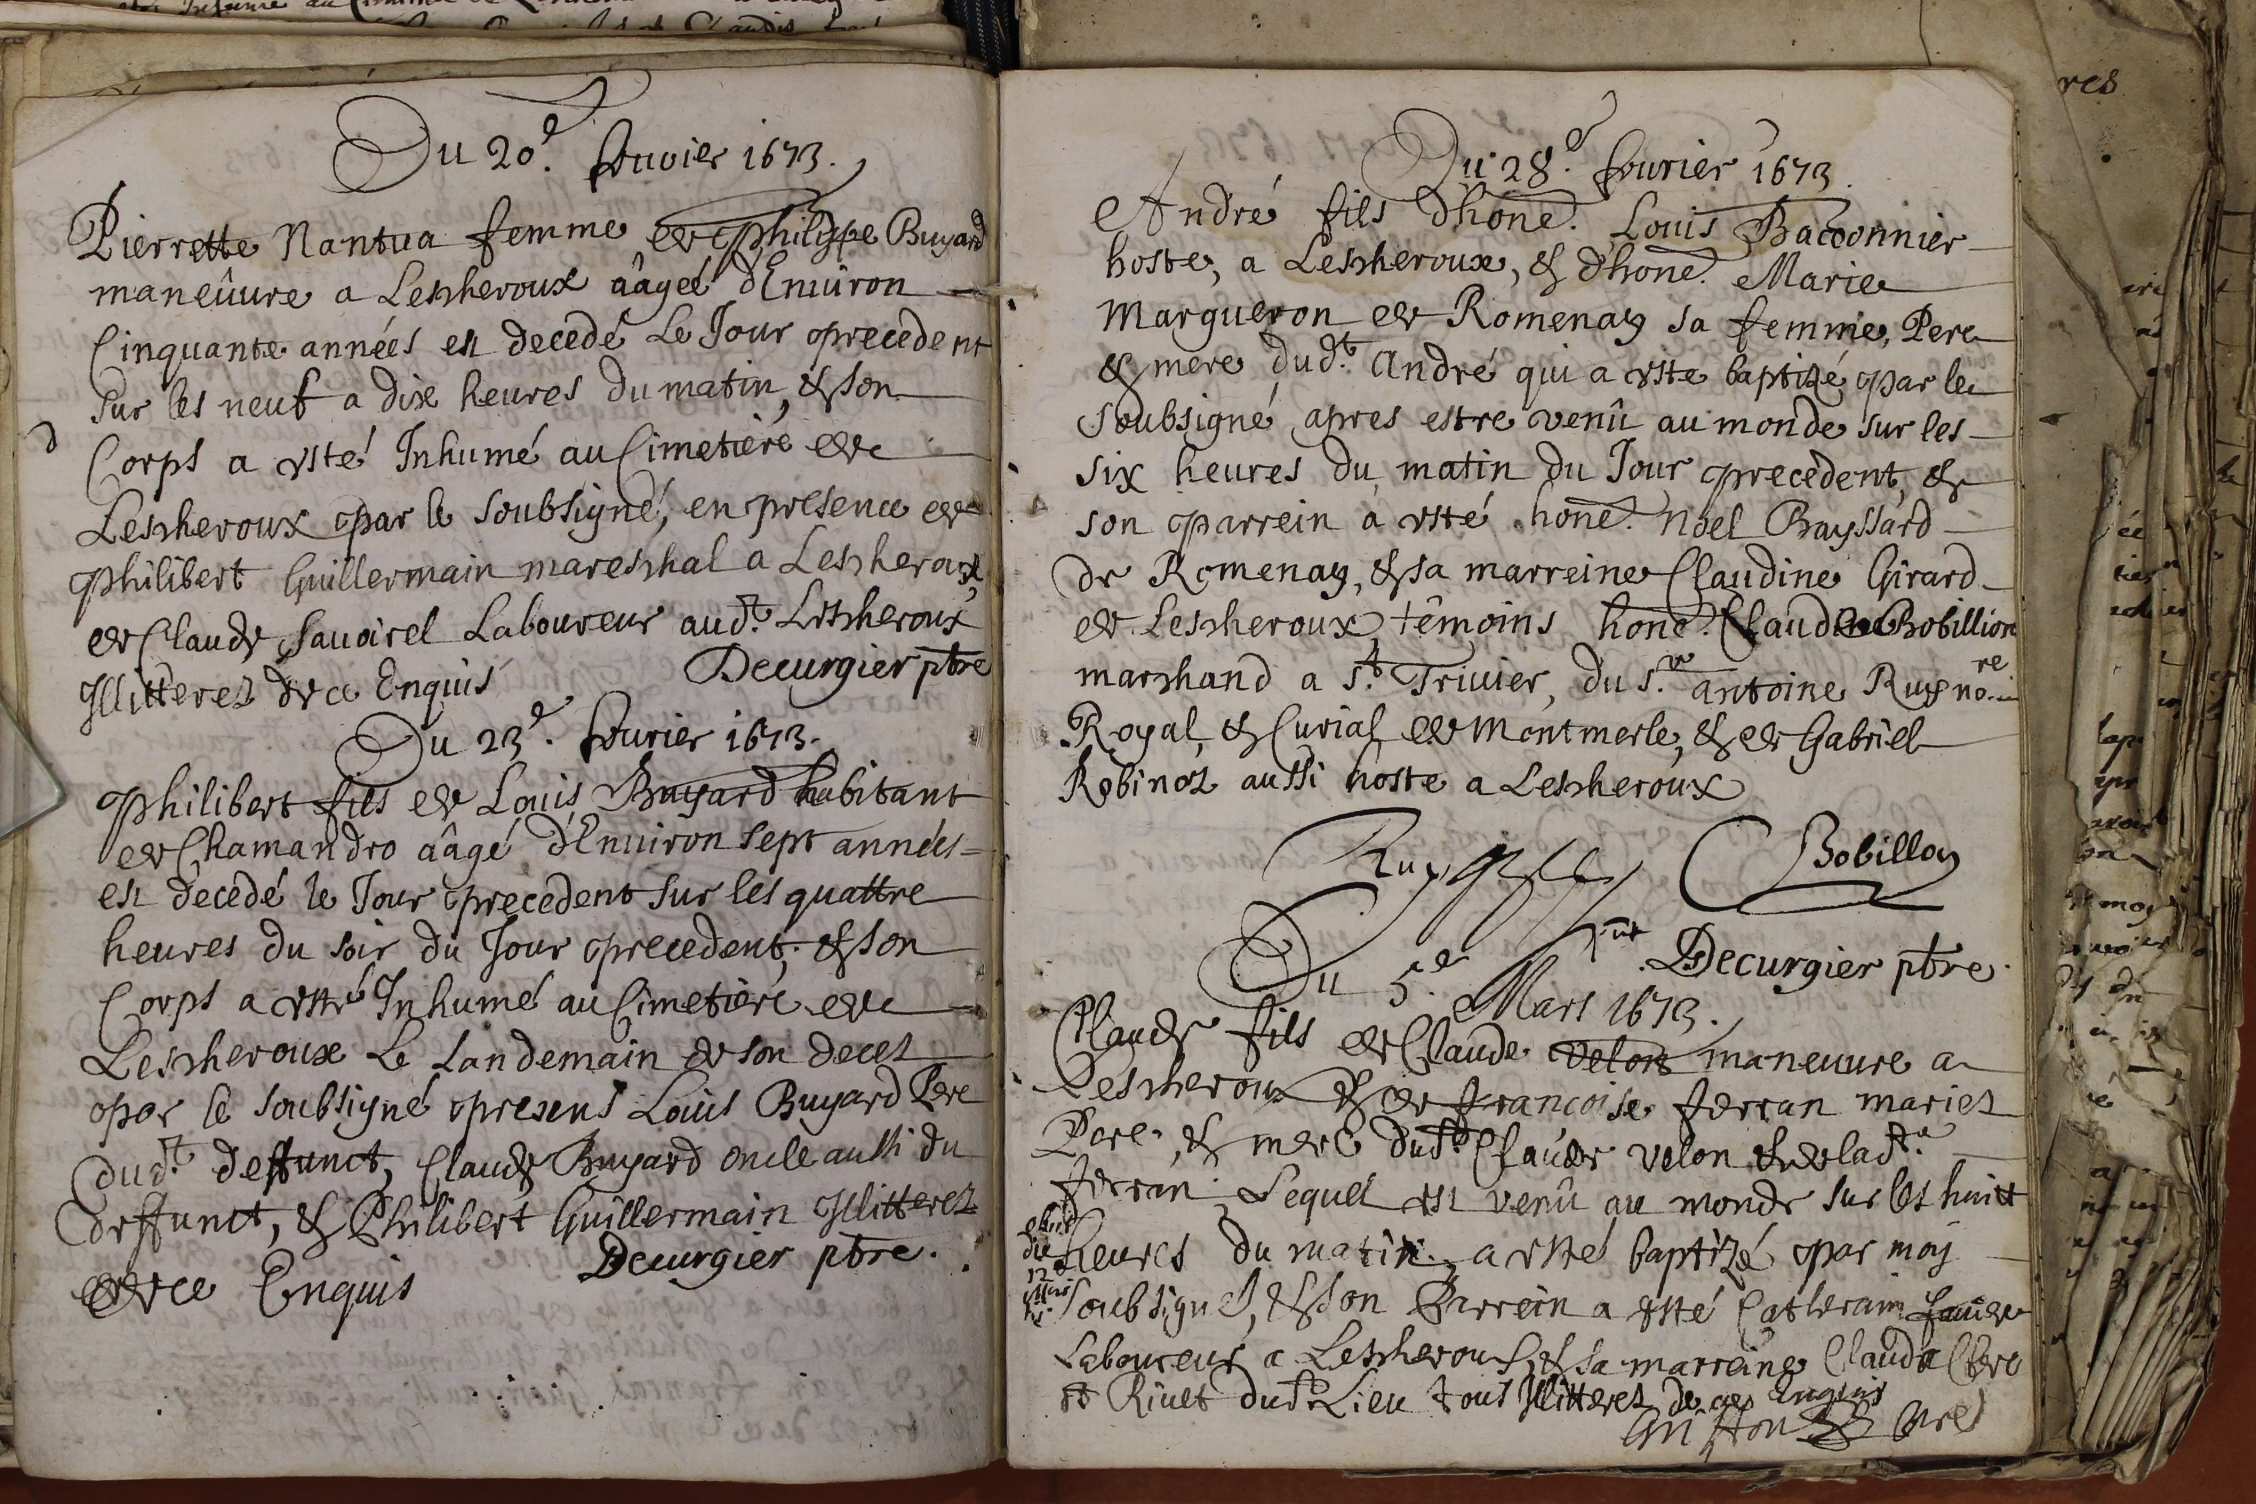 Du 20.e feuvier 1673.
Pierrette Nantua femme de Philippe Buyard
maneûure a Lescheroux aâgeé dEnuiron
Cinquante années est decedé Le Jour precedent
sur les neuf a dix heures du matin, & son
Corps a esté Inhumé au Cimetiere de
Lescheroux par le soubsigné, en presence de
Philibert Guillermain mareschal a Lescheroux,
de Claude Sauoirel Laboureur aud.t Lescheroux
Illitterez de ce Enquis Decurgier ptre
Du 23.e feurier 1673.
Philibert fils de Louis Buyard habitant
de Chamandro aâgé dEnuiron sept années
est decedé le Jour precedent sur les quattre
heures du soir du Jour precedent, & son
Corps a esté Inhumé au Cimetiere de
Lescheroux Le Landemain de son decez
par le soubsigné presens Louis Buyard Pere
dud.t deffunct, Claude Buyard oncle aussi du
deffunct, & Philibert Guillermain Illitterez
de ce Enquis Decurgier ptre.
Du 28.e feurier 1673.
André fils dhone. Louis Bacconnier
hoste, a Lescheroux, & dhone. Marie
Margueron de Romenay sa femme, Pere
& mere dud.t André qui a esté baptizé par le
soubsigné apres estre venû au monde sur les
six heures du matin du Jour precedent, &
son parrein a esté hone. Noel Bayssard
de Romenay, & sa marreine Claudine Girard
de Lescheroux, têmoins hone. Claude Bobillion
marchand a S.t Triuier, du S.r antoine Ruy no.re
Royal, & Curial de Montmerle, & de Gabriel
Robinot aussi hoste a Lescheroux
Ruy Bobillon
Decurgier ptre.
Du 5.e Mars 1673.
Claude fils de Claude Velon maneuure a
Lescheroux & de francoise ferran mariez
Pere, & mere dud.t Claude velon & de lad.e
ferran. Lequel est venû au monde sur les huitt
heures du matin, a esté baptizé par moy
soubsigné, & son Parrein a esté Catherain
Laboureur a Lescheroux, & sa marreine Clauda
Riuet dud.t Lieu tous Illitterez de ce Enquis